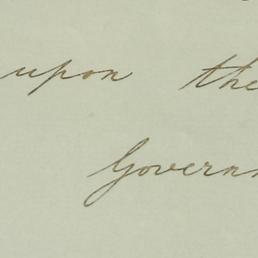 upon the
Govern